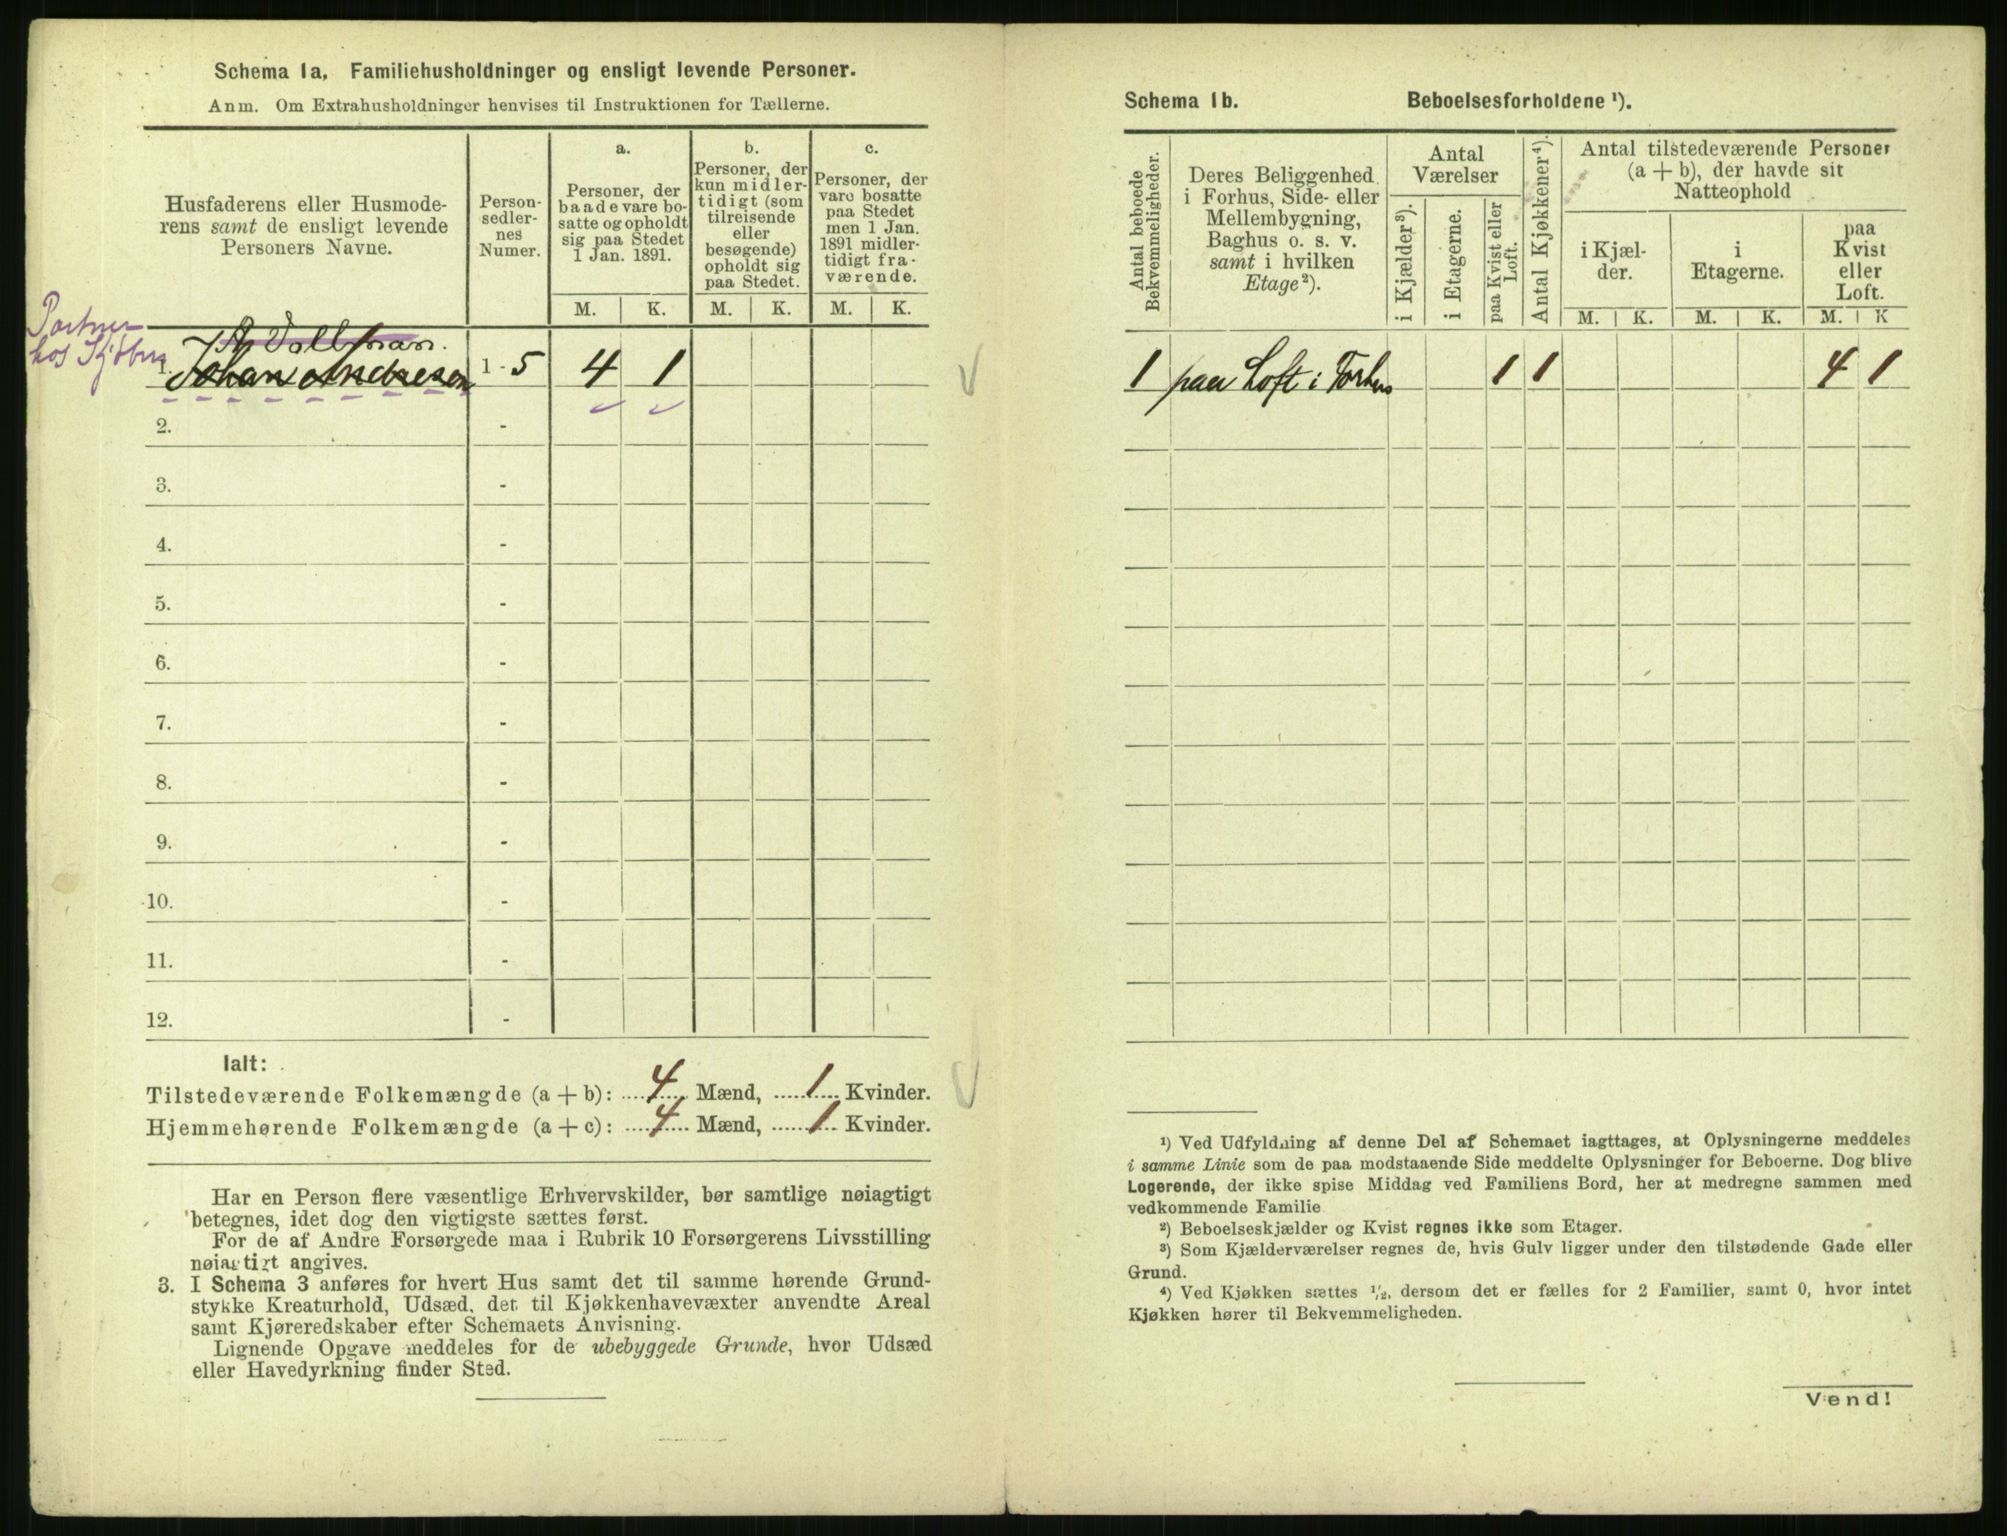 Schema 1a, Familiehusholdninger og ensligt levende Personer.
Anm. Om Extrahusholdninger henvises til Instruktionen for Tællerne.
Husfaderens eller Husmode-
rens samt de ensligt levende
Personers Navne.
Person-
sedler-
nes
Numer.
a.
Personer, der
baade vare bo-
satte og opholdt
sig paa Stedet
1 Jan. 1891.
b.
Personer, der
kun midler-
tidigt (som
tilreisende
eller
besøgende)
opholdt sig
paa Stedet.
c.
Personer, der
vare bosatte
paa Stedet
men 1 Jan.
1891 midler-
tidigt fra-
værende.
M. K. M. K. M. K.
Portner
hos
1. Johan Andresen 1 - 5 4 1
2. -
3. -
4. -
5. -
6. -
7. -
8. -
9. -
10. -
11. -
12. -
Ialt:
Tilstedeværende Folkemængde (a + b): 4 Mænd, 1 Kvinder.
Hjemmehørende Folkemængde (a + c): 4 Mænd, 1 Kvinder.
Har en Person flere væsentlige Erhvervskilder, bør samtlige nøiagtigt
betegnes, idet dog den vigtigste sættes først.
For de af Andre Forsørgede maa i Rubrik 10 Forsørgerens Livsstilling
nøiagtigt angives.
3. I Schema 3 anføres for hvert Hus samt det til samme hørende Grund-
stykke Kreaturhold, Udsæd, det til Kjøkkenhavevæxter anvendte Areal
samt Kjøreredskaber efter Schemaets Anvisning.
Lignende Opgave meddeles for de ubebyggede Grunde, hvor Udsæd
eller Havedyrkning finder Sted.
Schema 1b. Beboelsesforholdene ¹).
Antal beboede
Bekvemmeligheder.
Deres Beliggenhed
i Forhus, Side- eller
Mellembygning,
Baghus o. s. v.
samt i hvilken
Etage ²).
Antal
Værelser
i Kjælder ³).
i Etagerne.
paa Kvist eller
Loft.
Antal Kjøkkener ⁴).
Antal tilstedeværende Personer
(a + b), der havde sit
Natteophold
i Kjæl-
der.
i
Etagerne.
paa
Kvist
eller
Loft.
M. K. M. K. M. K
1 paa Loft i Forhus 1 1 4 1
¹) Ved Udfyldning af denne Del af Schemaet iagttages, at Oplysningerne meddeles
i samme Linie som de paa modstaaende Side meddelte Oplysninger for Beboerne. Dog blive
Logerende, der ikke spise Middag ved Familiens Bord, her at medregne sammen med
vedkommende Familie
²) Beboelseskjælder og Kvist regnes ikke som Etager.
³) Som Kjælderværelser regnes de, hvis Gulv ligger under den tilstødende Gade eller
Grund.
⁴) Ved Kjøkken sættes ½, dersom det er fælles for 2 Familier, samt 0, hvor intet
Kjøkken hører til Bekvemmeligheden.
Vend!